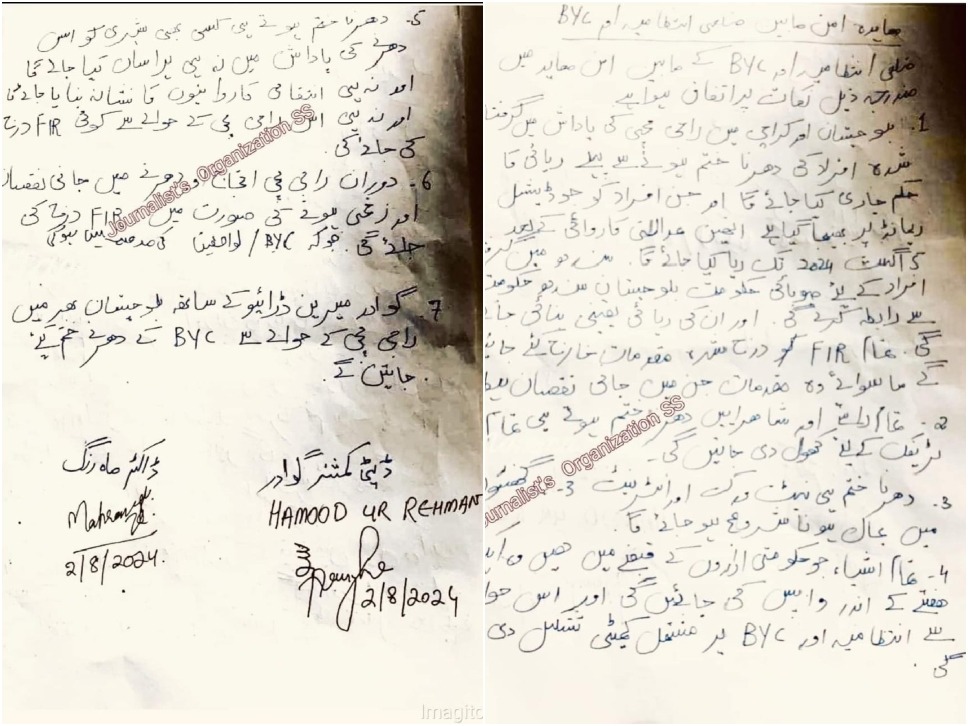 معاہدہ امن مابین ضلعی انتظامیہ اور BYC
ضلعی انتظامیہ اور BYC کے مابین امن معاہدہ میں
مندرجہ ذیل نکات پر اتفاق ہوا ہے
1. بلوچستان اور کراچی میں راجی مچی کی پاداش میں گرفتار
شدہ افراد کی دھرنا ختم ہونے سے پہلے رہائی کا
حکم جاری کیا جائے گا اور جن افراد کو جوڈیشل
ریمانڈ پر بھیجا گیا ہے انہیں عدالتی کاروائی کے بعد
5 اگست 2024 تک رہا کیا جائے گا.
افراد کے لئے صوبائی حکومت بلوچستان سندھ حکومت
سے رابطہ کرے گی. اور ان کی رہائی یقینی بنائی جائے
گی. تمام FIR درج شدہ مقدمات خارج کئے جائیں
گے ماسوائے وہ مقدمات جن میں جانی نقصان ہوا
2. تمام راستے اور شاہراہیں دھرنا ختم ہوتے ہی تمام
ٹریفک کے لئے کھول دی جائیں گی.
3. دھرنا ختم ہی نیٹ ورک اور انٹرنیٹ 3- گھنٹوں
میں بحال ہونا شروع ہو جائے گا
4- تمام اشیاء جو حکومتی اداروں کے قبضے میں ہیں وہ ایک
ہفتے کے اندر واپس کی جائیں گی اور اس حوالے
سے انتظامیہ اور BYC پر مشتمل کمیٹی تشکیل دی
گی.
5- دھرنا ختم ہوتے ہی کسی بھی شہری کو اس
دھرنے کی پاداش میں نہ ہی ہراساں کیا جائے گا
اور نہ ہی انتقامی کاروائیوں کا نشانہ بنایا جائے گا
اور نہ ہی اس راجی مچی کے حوالے سے کوئی FIR درج
کی جائے گی.
6- دوران راجی مچی اجتماع و دھرنے میں جانی نقصان
اور زخمی ہونے کی صورت میں FIR درج کی
جائے گی. جو کہ BYC / لواحقین کی
7. گوادر میرین ڈرائیو کے ساتھ بلوچستان بھر میں
راجی مچی کے حوالے سے BYC کے دھرنے ختم کئے
جائیں گے.
ڈپٹی کمشنر گوادر
HAMOOD UR REHMAN
2/8/2024
ڈاکٹر ماہ رنگ
Mahrang
2/8/2024.
Journalist's Organization SS
Journalist's Organization SS
Imagitor